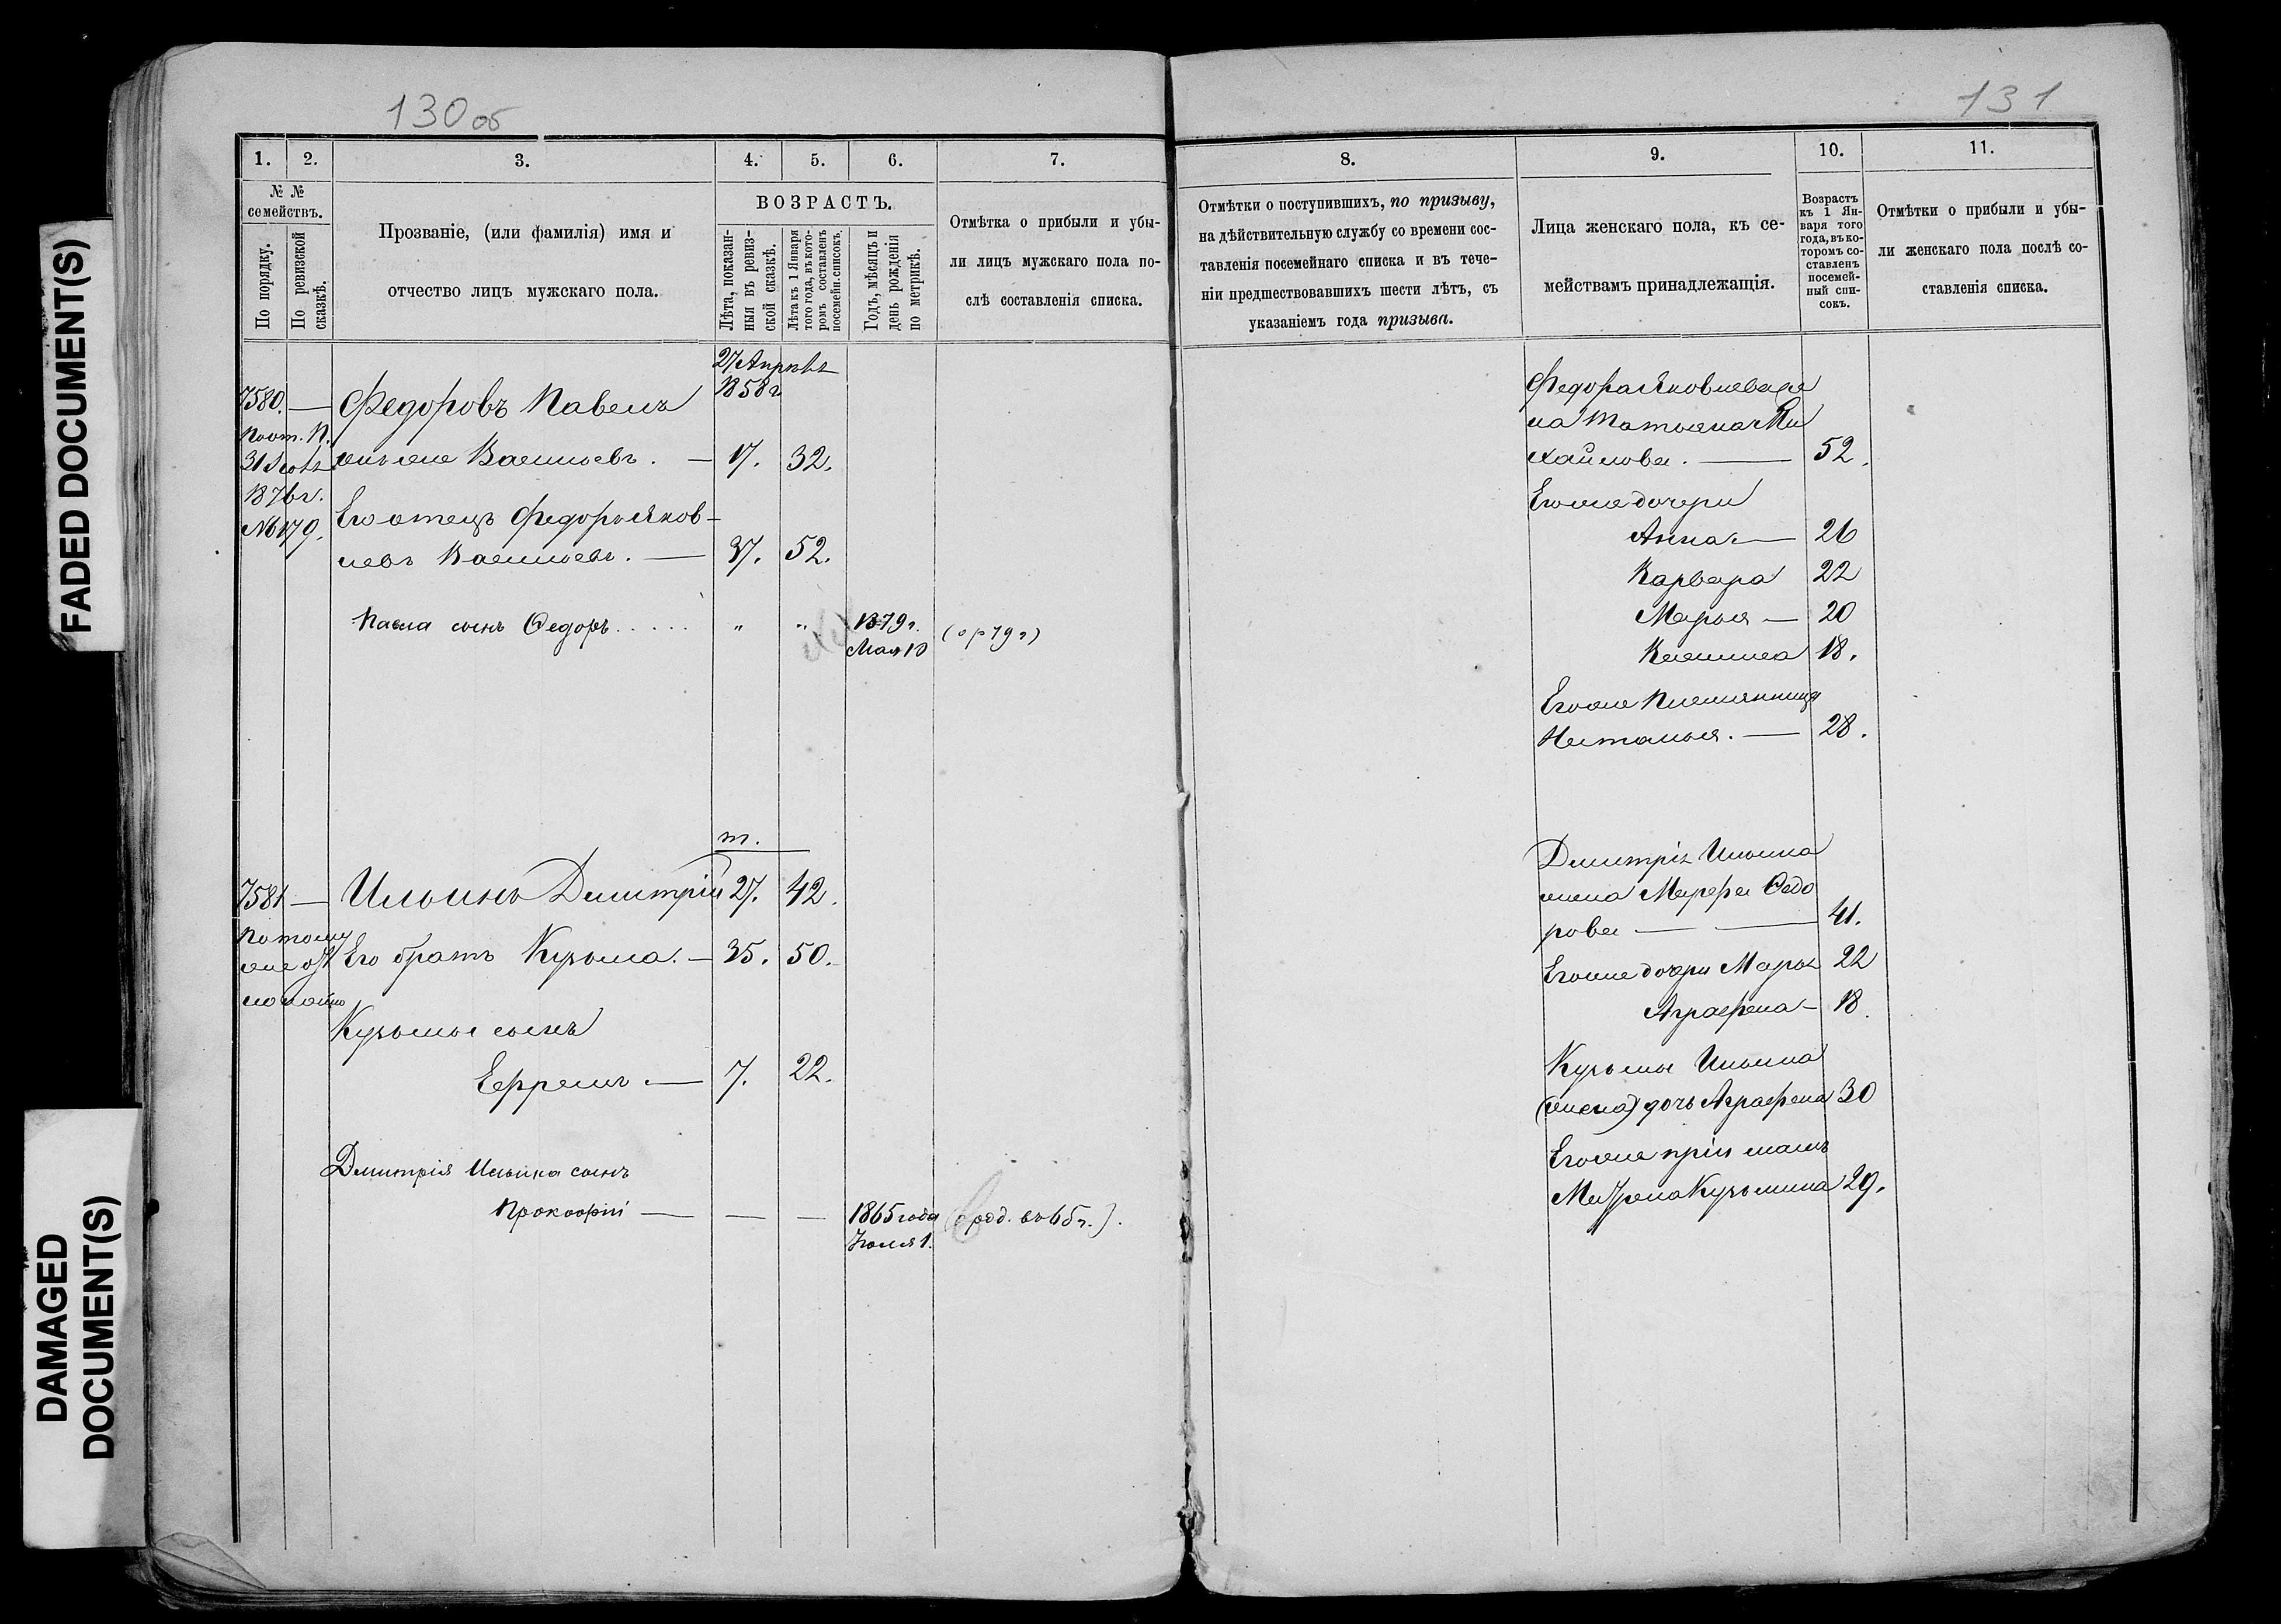 130 об
1. 2. 3. 4. 5. 6. 7.
№ №
семействъ.
По порядку.
По ревизской
сказкѣ.
Прозваніе, (или фамилія) имя и
отчество лицъ мужскаго пола.
ВОЗРАСТЪ.
Лѣта, показан-
ныя въ ревиз-
ской сказкѣ.
Лѣта къ 1 Января
того года, въ кото-
ромъ составленъ
посемейн. списокъ.
Годъ, мѣсяцъ и
день рожденія
по метрикѣ.
Отмѣтка о прибыли и убы-
ли лицъ мужскаго пола по-
слѣ составленія списка.
27 Апрѣля
1858 г.
7580. — Федоровъ Павелъ
Васильевъ. — 17. 32.
31
1876 г.
№ 179.
Его отецъ Федоръ Яков-
левъ Васильевъ. — 37. 52.
Павла сынъ Ѳедоръ . . . . . " " 1879 г. (о р 79 г)
Мая 10
т.
7581 — Ильинъ Дмитрій 27. 42.
Его братъ Кузьма. — 35. 50.
Кузьмы сынъ
Ефремъ. — 7. 22.
Дмитрія Ильина сынъ
Прокофій — — — 1865 года (о род. въ 65 г.).
Іюля 1.
131
8. 9. 10. 11.
Отмѣтки о поступившихъ, по призыву,
на дѣйствительную службу со времени сос-
тавленія посемейнаго списка и въ тече-
ніи предшествовавшихъ шести лѣтъ, съ
указаніемъ года призыва.
Лица женскаго пола, къ се-
мействамъ принадлежащія.
Возрастъ
къ 1 Ян-
варя того
года, въ ко-
торомъ со-
ставленъ
посемей-
ный спи-
сокъ.
Отмѣтки о прибыли и убы-
ли женскаго пола послѣ со-
ставленія списка.
Федора Яковлева же
на Татьяна Ми
хайлова. — 52.
Его же дочери
Анна — 26
Варвара 22
Марья — 20
18.
Его же племянница
Наталья. — 28.
Дмитрія Ильина
жена Марфа Ѳедо
рова — — 41.
Его же дочери Марья 22
Аграфена — 18.
Кузьмы Ильина
(жена) дочь Аграфена 30
Его же пріимышъ
Матрена Кузьмина 29.
FADED DOCUMENT(S)
DAMAGED
DOCUMENT(S)